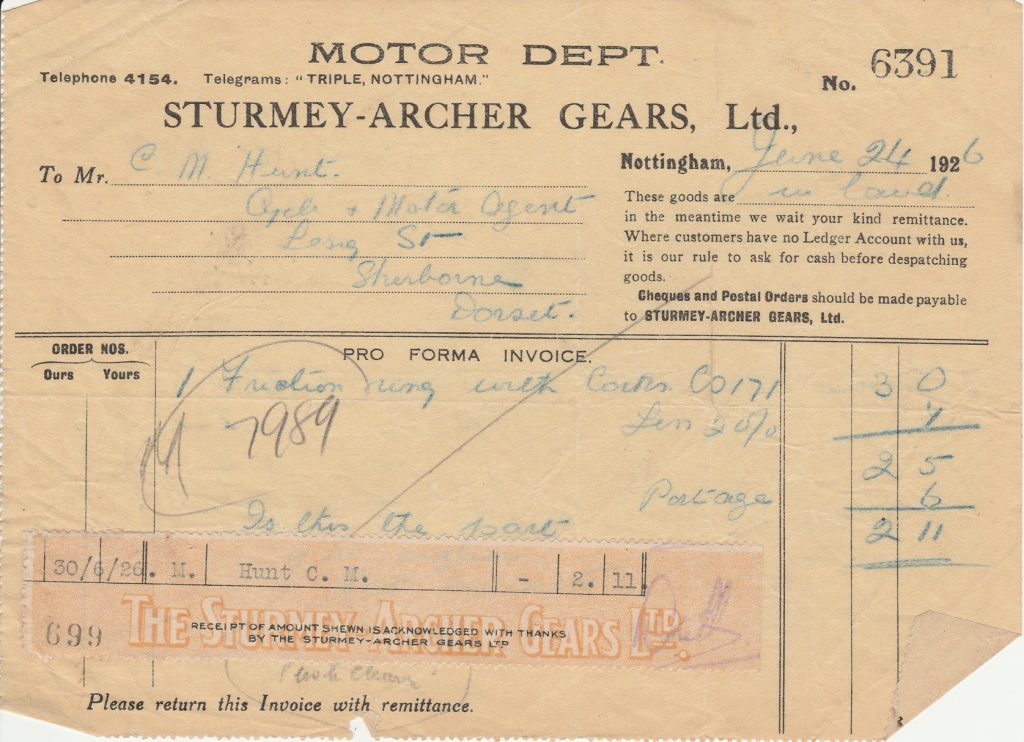 MOTOR DEPT.
Telephone 4154. Telegrams: "TRIPLE, NOTTINGHAM."
No. 6391
STURMEY-ARCHER GEARS, Ltd.,
To Mr. C M. Hunt.
Cycle + Motor Agent
Long St
Sherborne
Dorset.
Nottingham, June 24 1926
These goods are in hand.
in the meantime we wait your kind remittance.
Where customers have no Ledger Account with us,
it is our rule to ask for cash before despatching
goods.
Cheques and Postal Orders should be made payable
to STURMEY-ARCHER GEARS, Ltd.
ORDER NOS.
Ours Yours
PRO FORMA INVOICE.
1 Friction ring with Corks CO171 3 0
Less 20% 7
7989
2 5
Postage 6
Is this the part
2 11
30/6/26. M. Hunt C. M. - 2. 11.
THE STURMEY-ARCHER GEARS LTD.
699
RECEIPT OF AMOUNT SHEWN IS ACKNOWLEDGED WITH THANKS
BY THE STURMEY-ARCHER GEARS LTD
Please return this Invoice with remittance.